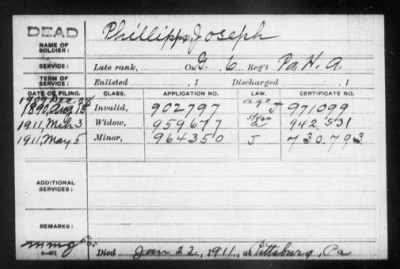 DEAD
Phillipps, Joseph
NAME OF SOLDIER:
SERVICE: Late rank, Co. G. 6 Reg't Pa H. A.
TERM OF SERVICE: Enlisted , 1 Discharged , 1
DATE OF FILING. CLASS. APPLICATION NO. LAW. CERTIFICATE NO.
age
1890, Aug 15 Invalid, 902797 J 971099
1911, Mch 3 Widow, 959677 942531
1911, May 5 Minor, 964350 J 730793
ADDITIONAL SERVICES:
REMARKS:
Died Jan 22, 1911, at Pittsburg, Pa